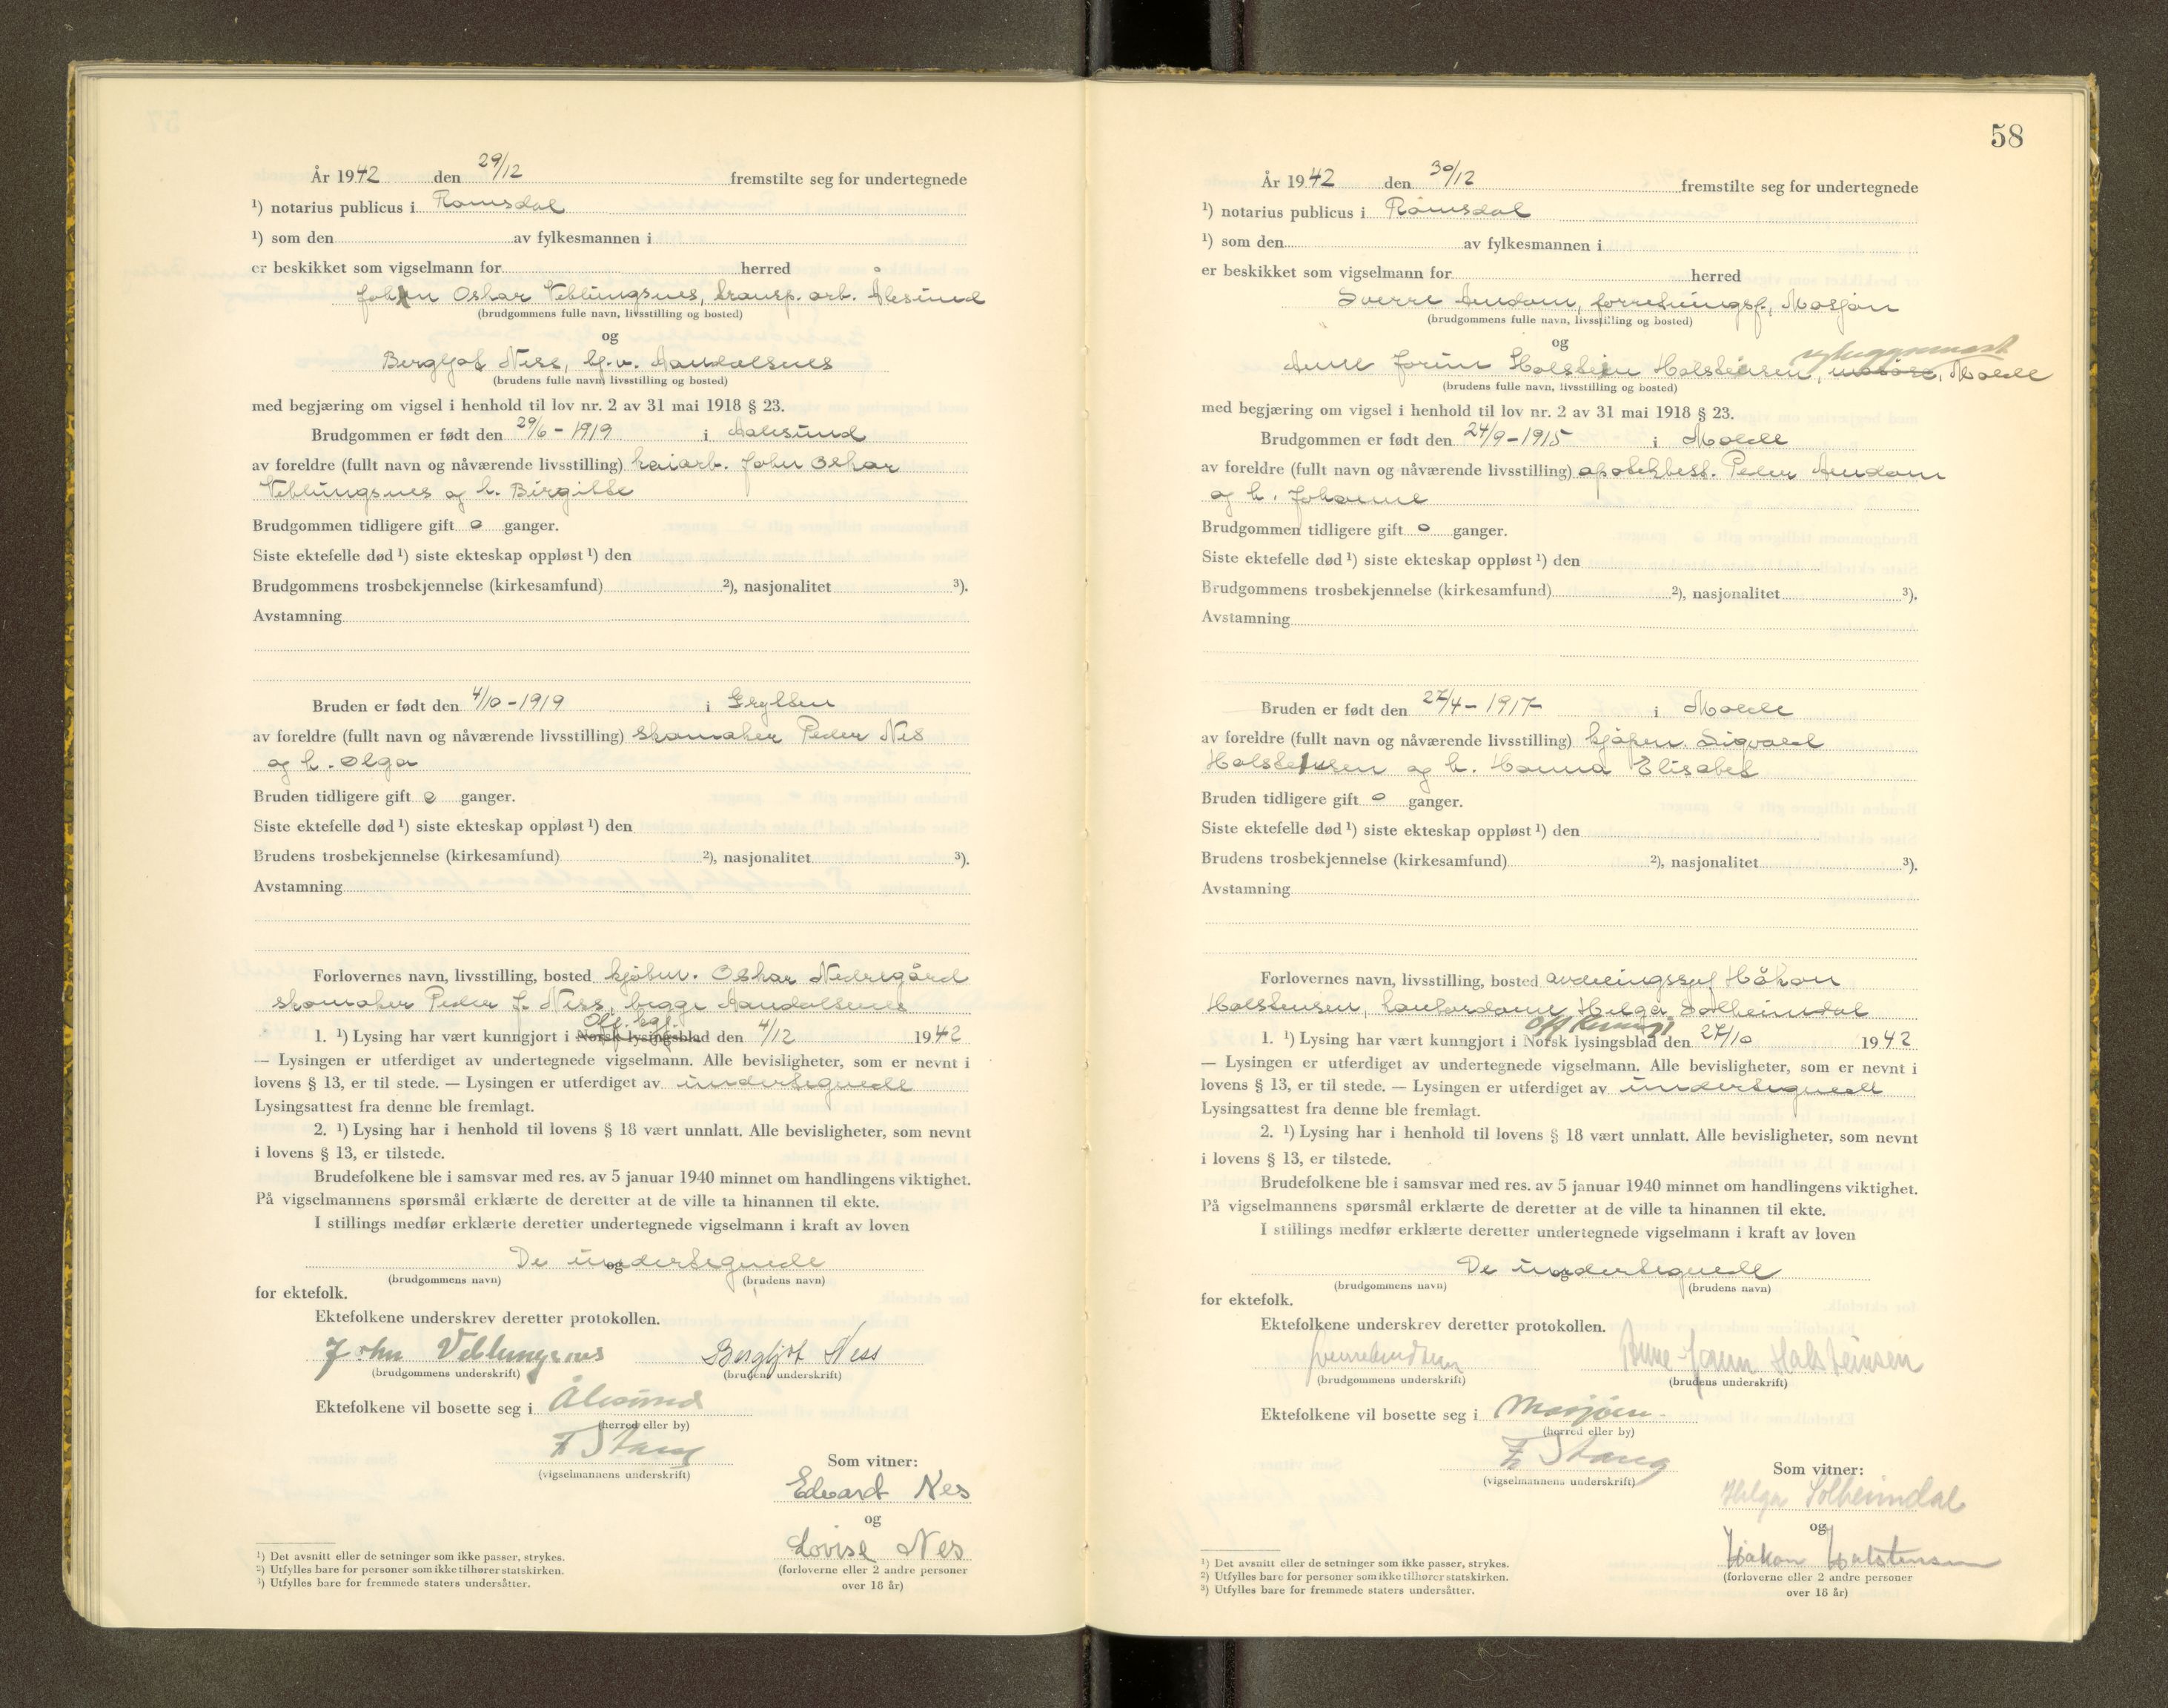 År 1942 den 29/12 fremstilte seg for undertegnede
¹) notarius publicus i Romsdal
¹) som den av fylkesmannen i
er beskikket som vigselmann for herred
John Oskar Veblungsnes, transp. arb. Ålesund
(brudgommens fulle navn, livsstilling og bosted)
og
Bergljot Ness, hj.v. Aandalsnes
(brudens fulle navn, livsstilling og bosted)
med begjæring om vigsel i henhold til lov nr. 2 av 31 mai 1918 § 23.
Brudgommen er født den 29/6 - 1919 i Aalesund
av foreldre (fullt navn og nåværende livsstilling) kaiarb. John Oskar
Veblungsnes og h. Birgitte
Brudgommen tidligere gift 0 ganger.
Siste ektefelle død ¹) siste ekteskap oppløst ¹) den
Brudgommens trosbekjennelse (kirkesamfund) ²), nasjonalitet ³).
Avstamning
Bruden er født den 4/10 - 1919 i Grytten
av foreldre (fullt navn og nåværende livsstilling) skomaker Peder Nes
og h. Olga
Bruden tidligere gift 0 ganger.
Siste ektefelle død ¹) siste ekteskap oppløst ¹) den
Brudens trosbekjennelse (kirkesamfund) ²), nasjonalitet ³).
Avstamning
Forlovernes navn, livsstilling, bosted kjøbm. Oskar Nedregård
skomaker Peder J. Ness, begge Aandalsnes
Off. kgj.
1. ¹) Lysing har vært kunngjort i Norsk lysingsblad den 4/12 1942
— Lysingen er utferdiget av undertegnede vigselmann. Alle bevisligheter, som er nevnt i
lovens § 13, er til stede. — Lysingen er utferdiget av undertegnede
Lysingsattest fra denne ble fremlagt.
2. ¹) Lysing har i henhold til lovens § 18 vært unnlatt. Alle bevisligheter, som nevnt
i lovens § 13, er tilstede.
Brudefolkene ble i samsvar med res. av 5 januar 1940 minnet om handlingens viktighet.
På vigselmannens spørsmål erklærte de deretter at de ville ta hinannen til ekte.
I stillings medfør erklærte deretter undertegnede vigselmann i kraft av loven
De undertegnede
og
(brudgommens navn) (brudens navn)
for ektefolk.
Ektefolkene underskrev deretter protokollen.
John Veblungsnes Bergljot Ness
(brudgommens underskrift) (brudens underskrift)
Ektefolkene vil bosette seg i Ålesund
(herred eller by)
F Stang
(vigselmannens underskrift)
Som vitner:
Edvard Nes
og
Lovise Nes
(forloverne eller 2 andre personer
over 18 år)
¹) Det avsnitt eller de setninger som ikke passer, strykes.
²) Utfylles bare for personer som ikke tilhører statskirken.
³) Utfylles bare for fremmede staters undersåtter.
58
År 1942 den 30/12 fremstilte seg for undertegnede
¹) notarius publicus i Romsdal
¹) som den av fylkesmannen i
er beskikket som vigselmann for herred
Sverre Amdam, forretningsf., Mosjøn
(brudgommens fulle navn, livsstilling og bosted)
og
Anne Jorun Holstein Holsteinsen, Molde
(brudens fulle navn, livsstilling og bosted)
med begjæring om vigsel i henhold til lov nr. 2 av 31 mai 1918 § 23.
Brudgommen er født den 24/9 - 1915 i Molde
av foreldre (fullt navn og nåværende livsstilling) apotekbest. Peder Amdam
og h. Johanne
Brudgommen tidligere gift 0 ganger.
Siste ektefelle død ¹) siste ekteskap oppløst ¹) den
Brudgommens trosbekjennelse (kirkesamfund) ²), nasjonalitet ³).
Avstamning
Bruden er født den 27/4 - 1917 i Molde
av foreldre (fullt navn og nåværende livsstilling) kjøpm. Sigvald
Holstensen og h. Hanna Elisabet
Bruden tidligere gift 0 ganger.
Siste ektefelle død ¹) siste ekteskap oppløst ¹) den
Brudens trosbekjennelse (kirkesamfund) ²), nasjonalitet ³).
Avstamning
Forlovernes navn, livsstilling, bosted Håkon
Holstensen, kontordame Helga Solheimdal
1. ¹) Lysing har vært kunngjort i Norsk lysingsblad den 27/10 1942
— Lysingen er utferdiget av undertegnede vigselmann. Alle bevisligheter, som er nevnt i
lovens § 13, er til stede. — Lysingen er utferdiget av undertegnede
Lysingsattest fra denne ble fremlagt.
2. ¹) Lysing har i henhold til lovens § 18 vært unnlatt. Alle bevisligheter, som nevnt
i lovens § 13, er tilstede.
Brudefolkene ble i samsvar med res. av 5 januar 1940 minnet om handlingens viktighet.
På vigselmannens spørsmål erklærte de deretter at de ville ta hinannen til ekte.
I stillings medfør erklærte deretter undertegnede vigselmann i kraft av loven
De undertegnede
og
(brudgommens navn) (brudens navn)
for ektefolk.
Ektefolkene underskrev deretter protokollen.
Sverre Amdam Anne Jorun Holsteinsen
(brudgommens underskrift) (brudens underskrift)
Ektefolkene vil bosette seg i Mosjøen
(herred eller by)
F Stang
(vigselmannens underskrift)
Som vitner:
Helga Solheimdal
og
Håkon Holstensen
(forloverne eller 2 andre personer
over 18 år)
¹) Det avsnitt eller de setninger som ikke passer, strykes.
²) Utfylles bare for personer som ikke tilhører statskirken.
³) Utfylles bare for fremmede staters undersåtter.